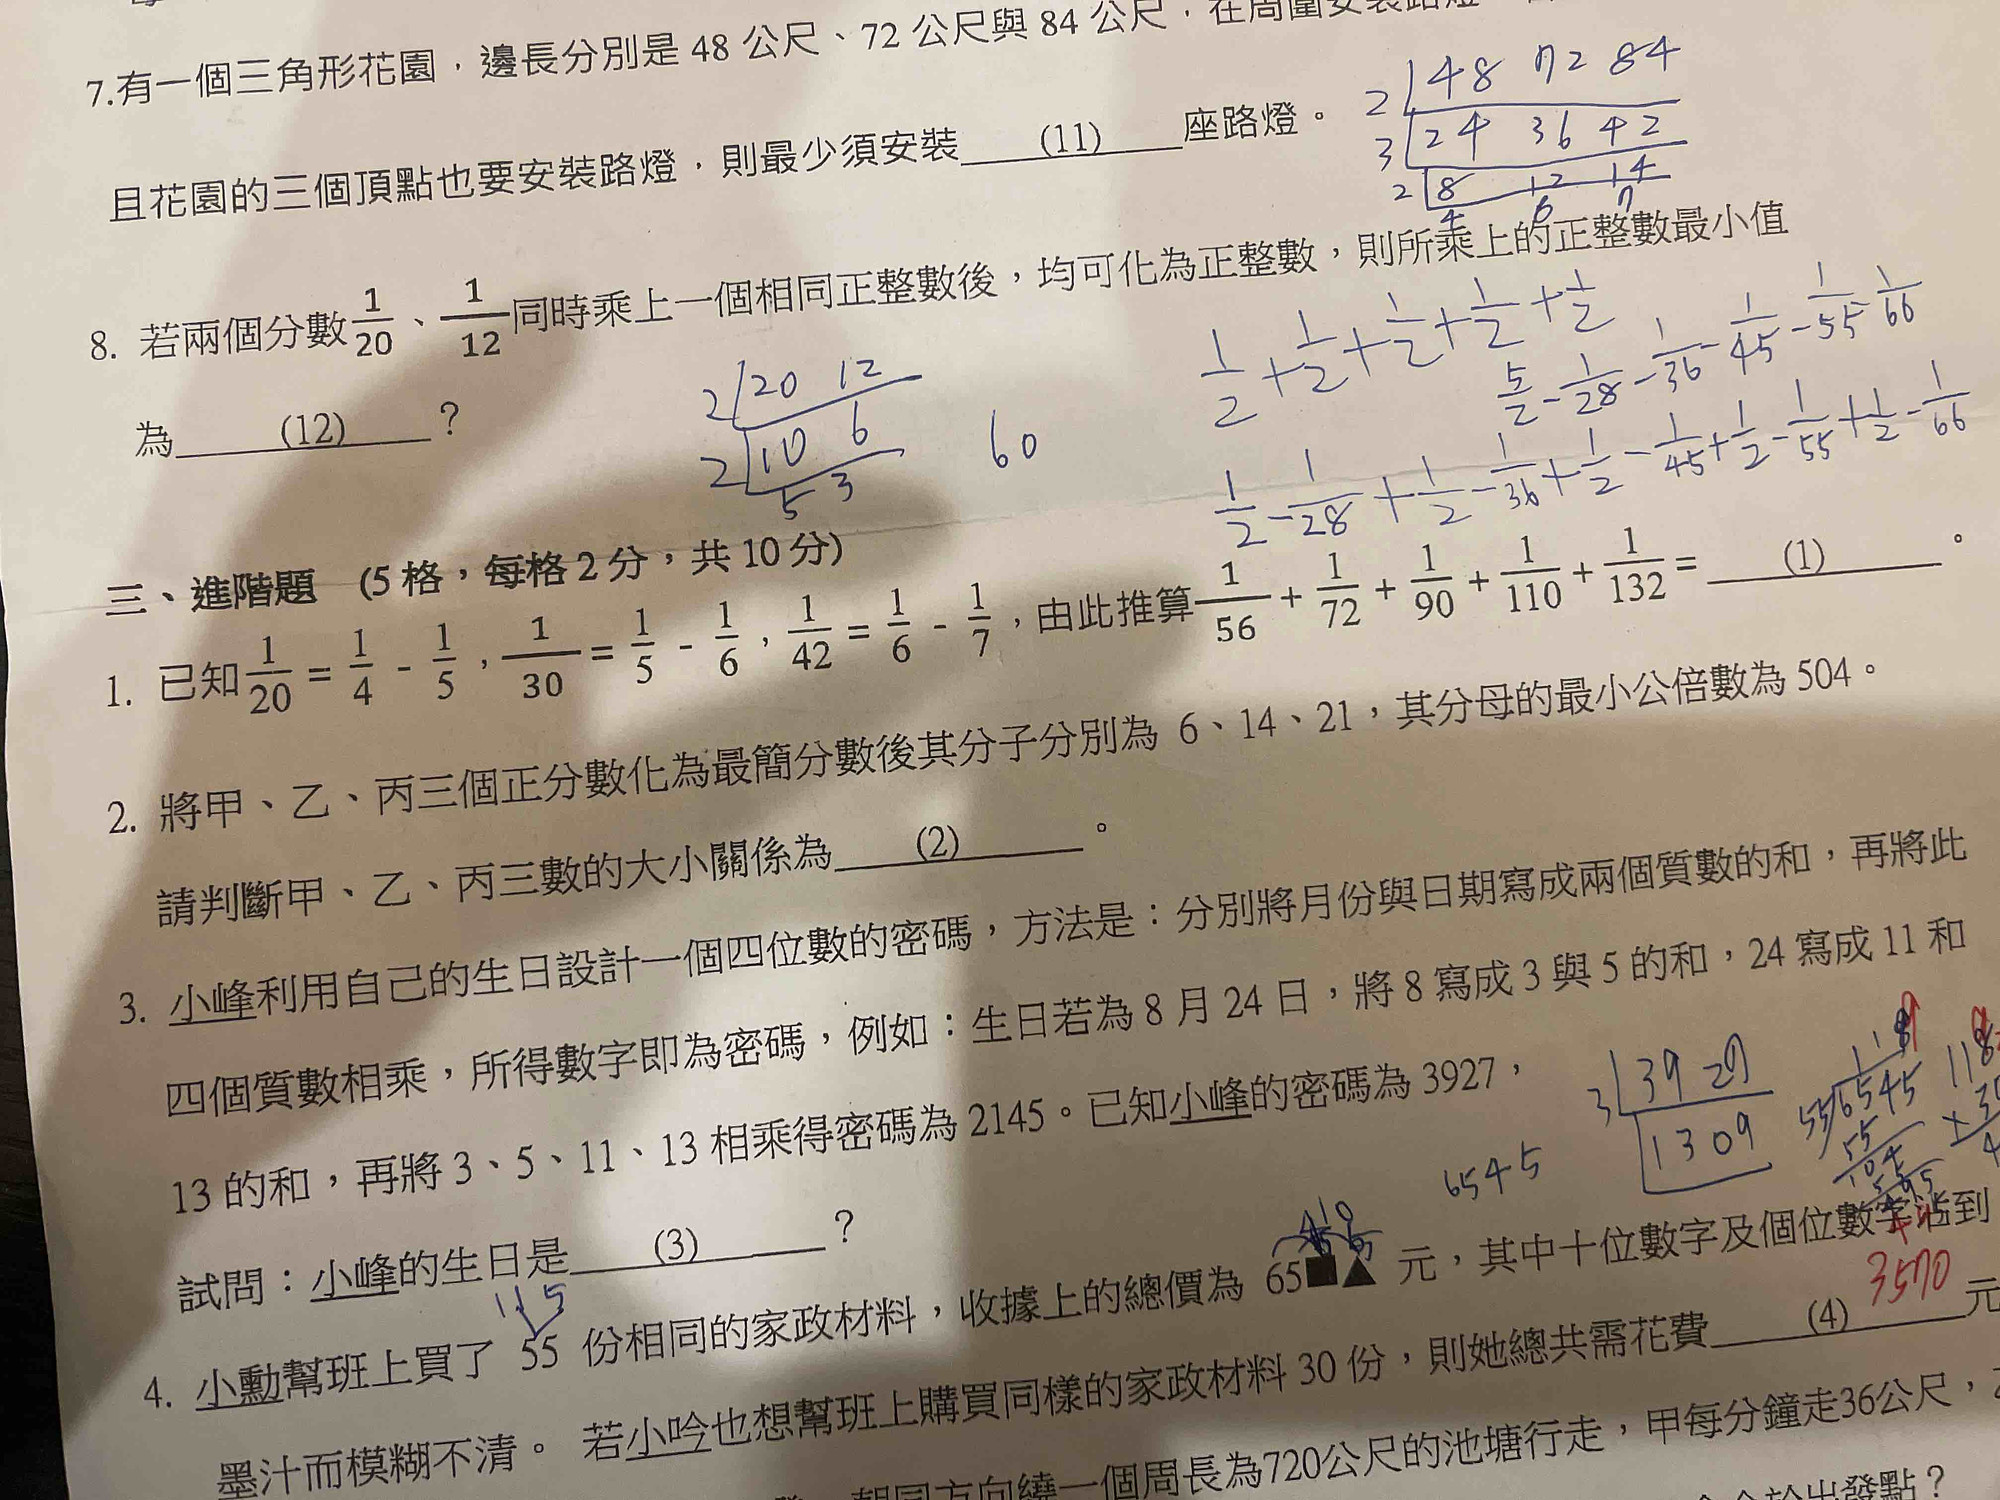 7.有一個三角形花園，邊長分別是 48 公尺、72 公尺與 84 公尺，在周圍安裝路燈
且花園的三個頂點也要安裝路燈，則最少須安裝 (11) 座路燈。
2 48 72 84
3 24 36 42
2 8 12 14
4 6 7
8. 若兩個分數 1/20、1/12 同時乘上一個相同正整數後，均可化為正整數，則所乘上的正整數最小值
為 (12) ？
2 20 12
2 10 6
5 3
60
1/2 + 1/2 + 1/2 + 1/2 + 1/2
5/2 - 1/28 - 1/36 - 1/45 - 1/55 - 1/66
1/2 - 1/28 + 1/2 - 1/36 + 1/2 - 1/45 + 1/2 - 1/55 + 1/2 - 1/66
三、進階題 (5 格，每格 2 分，共 10 分)
1. 已知 1/20 = 1/4 - 1/5，1/30 = 1/5 - 1/6，1/42 = 1/6 - 1/7，由此推算 1/56 + 1/72 + 1/90 + 1/110 + 1/132 = (1) 。
2. 將甲、乙、丙三個正分數化為最簡分數後其分子分別為 6、14、21，其分母的最小公倍數為 504。
請判斷甲、乙、丙三數的大小關係為 (2) 。
3. 小峰利用自己的生日設計一個四位數的密碼，方法是：分別將月份與日期寫成兩個質數的和，再將此
四個質數相乘，所得數字即為密碼，例如：生日若為 8 月 24 日，將 8 寫成 3 與 5 的和，24 寫成 11 和
13 的和，再將 3、5、11、13 相乘得密碼為 2145。已知小峰的密碼為 3927，
試問：小峰的生日是 (3) ？
3 3927
1309
6545
55 6545
55
11 5
4. 小勳幫班上買了 55 份相同的家政材料，收據上的總價為 65■▲ 元，其中十位數字及個位數字沾到
墨汁而模糊不清。 若小吟也想幫班上購買同樣的家政材料 30 份，則她總共需花費 (4) 元
3570
朝同方向繞一個周長為720公尺的池塘行走，甲每分鐘走36公尺，
出發點？